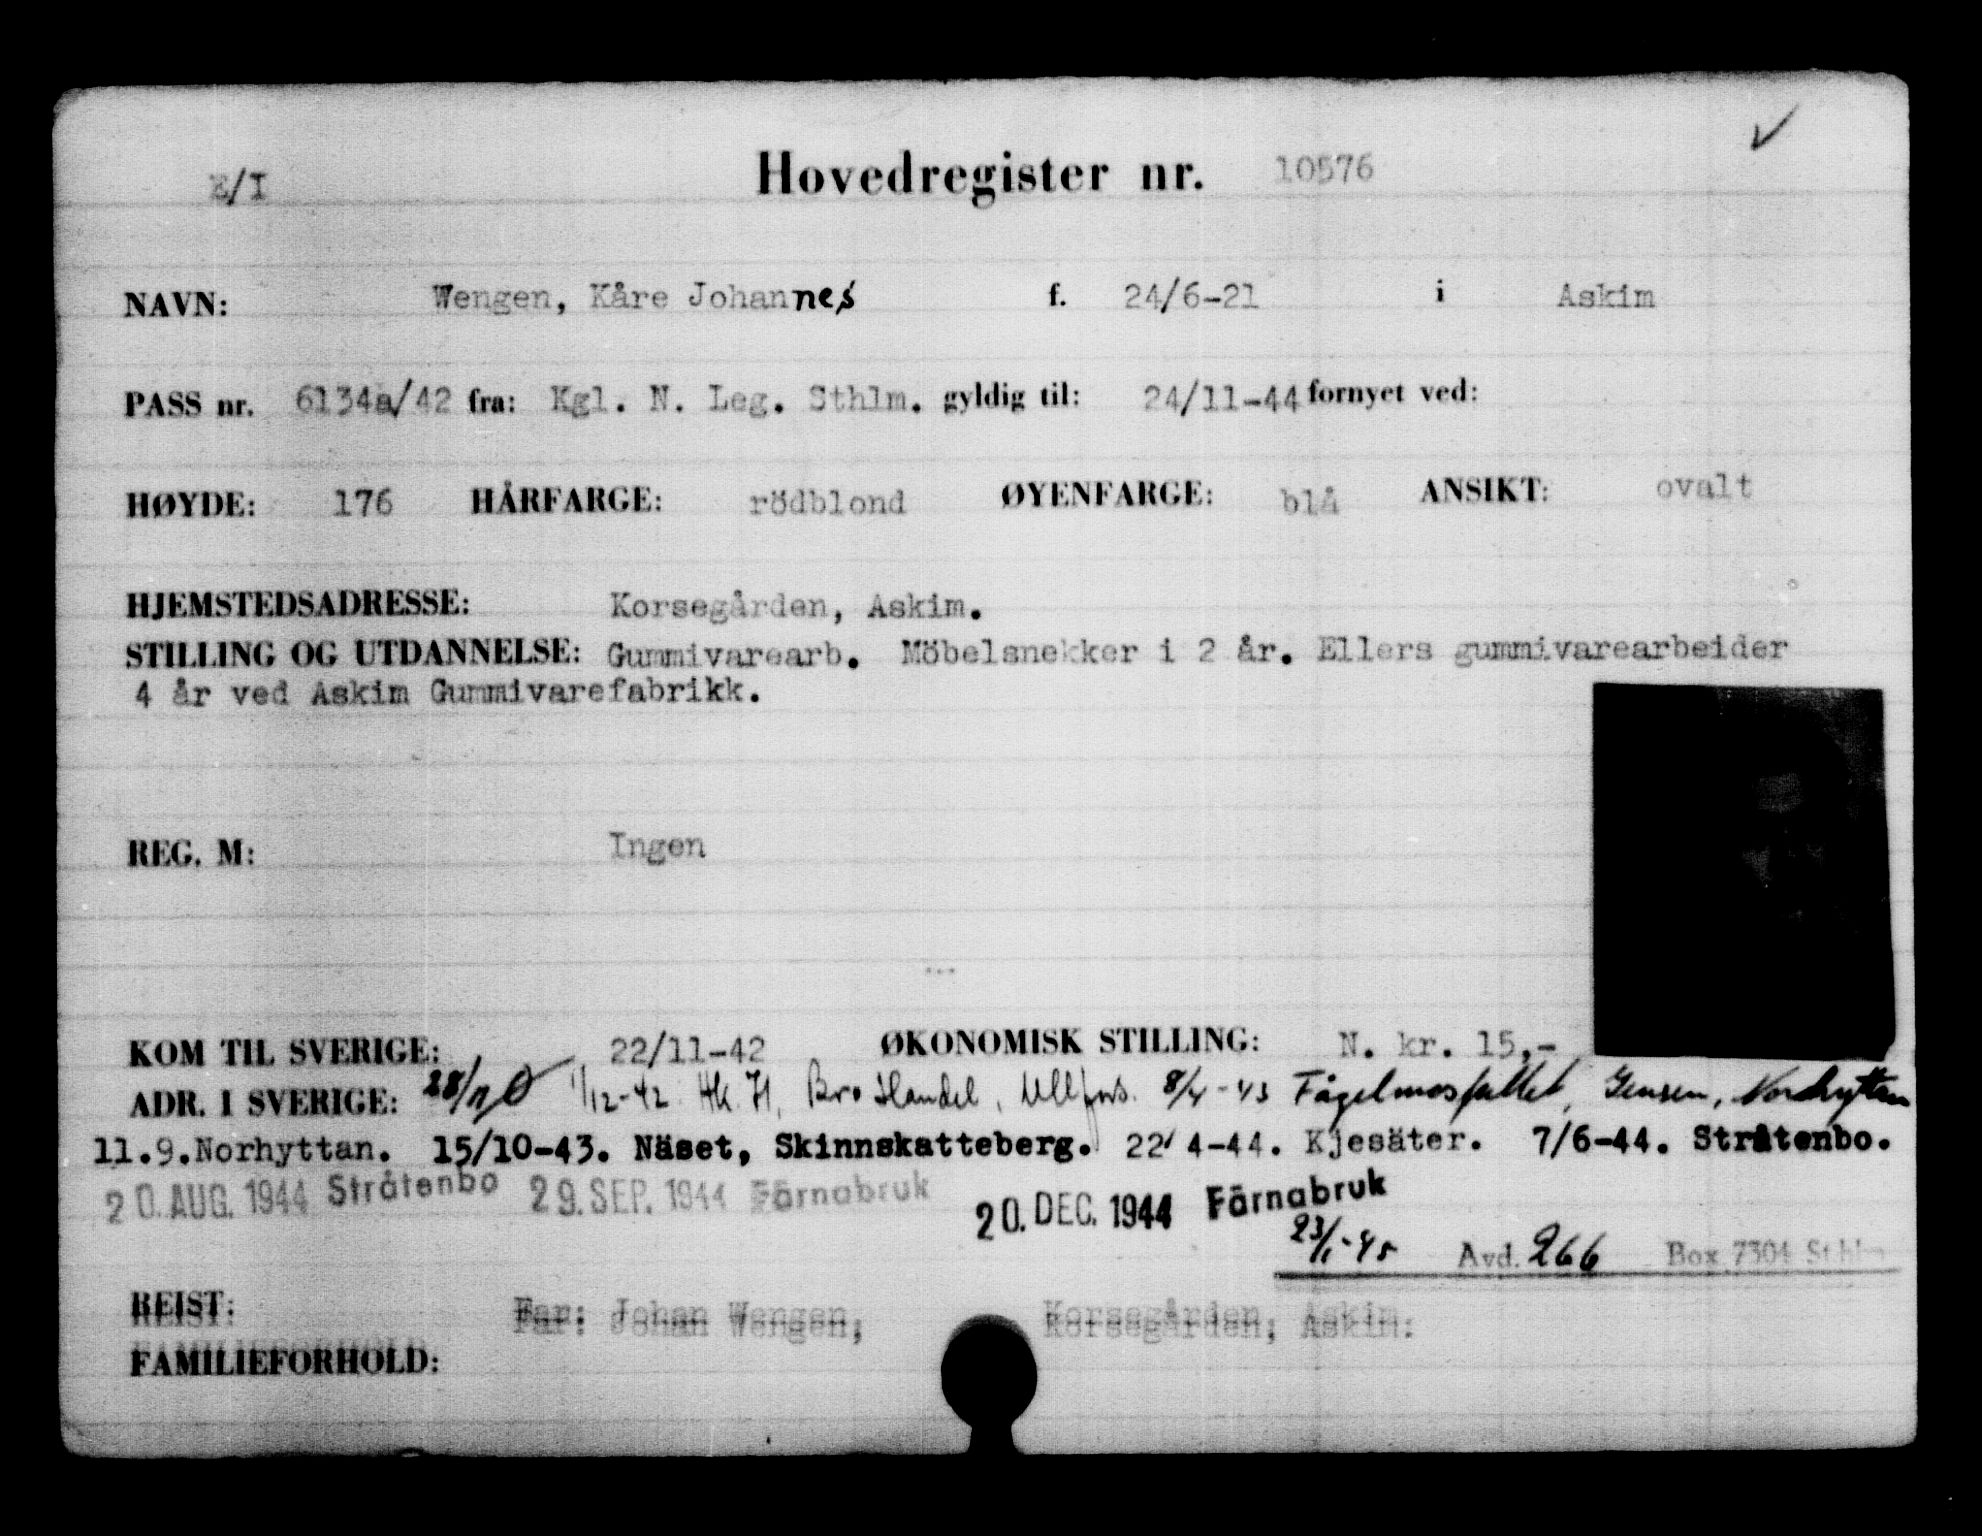 E/I Hovedregister nr. 10576
NAVN: Wengen, Kåre Johannes f. 24/6-21 i Askim
PASS nr. 6134a/42 fra: Kgl. N. Leg. Sthlm. gyldig til: 24/11-44 fornyet ved:
HØYDE: 176 HÅRFARGE: rödblond ØYENFARGE: blå ANSIKT: ovalt
HJEMSTEDSADRESSE: Korsegården, Askim.
STILLING OG UTDANNELSE: Gummivarearb. Möbelsnekker i 2 år. Ellers gummivarearbeider
4 år ved Askim Gummivarefabrikk.
REG. M: Ingen
KOM TIL SVERIGE: 22/11-42 ØKONOMISK STILLING: N. kr. 15,-
ADR. I SVERIGE: 28/11 Ø 1/12-42 Hk. 71, Bro Handel, Ullfors. 8/4-43 Fågelmosfallet, Jensen, Nordhyttan
11.9. Norhyttan. 15/10-43. Näset, Skinnskatteberg. 22/4-44. Kjesäter. 7/6-44. Stråtenbo.
20. AUG. 1944 Stråtenbo 29. SEP. 1944 Färnabruk 20. DEC. 1944 Färnabruk
23/1-45 Avd. 266 Box 7304 Sthlm
REIST: Far: Johan Wengen, Korsegården, Askim.
FAMILIEFORHOLD: